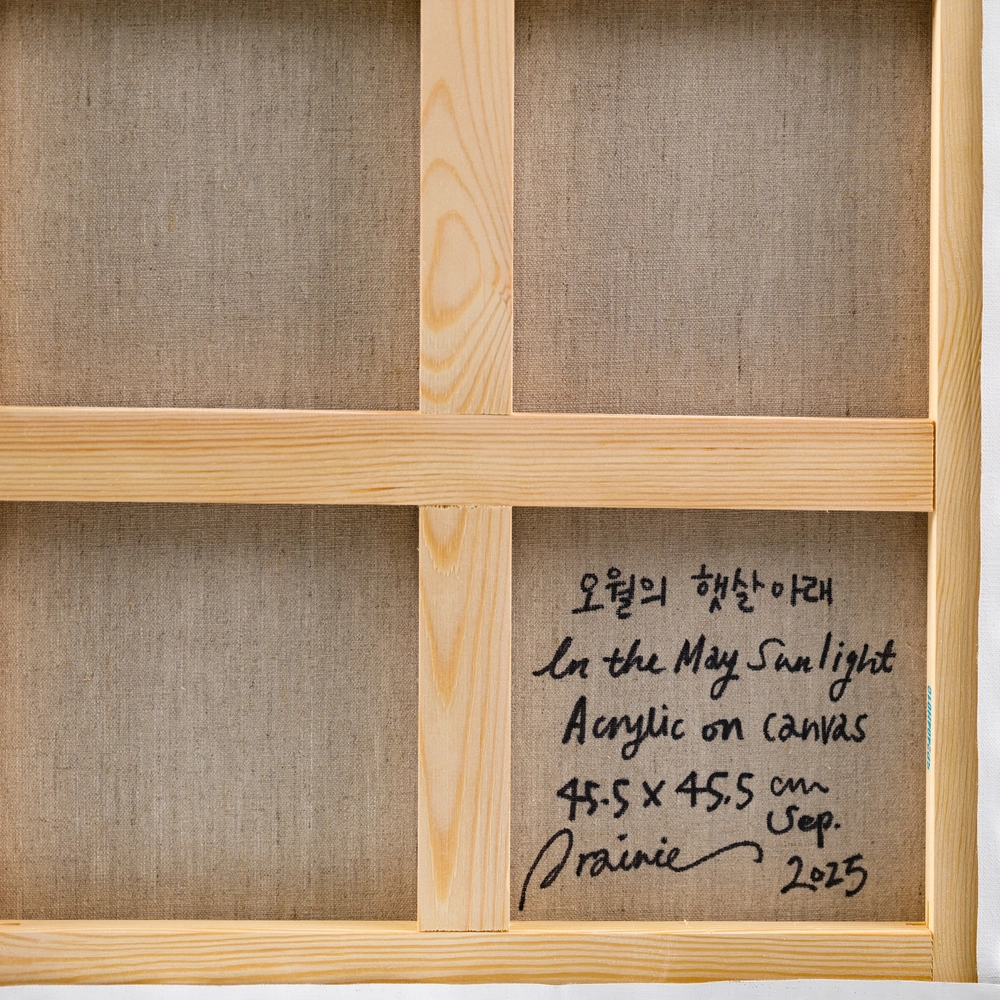 오월의 햇살아래
In the May Sunlight
Acrylic on canvas
45.5 x 45.5 cm
Sep.
Prairie 2025